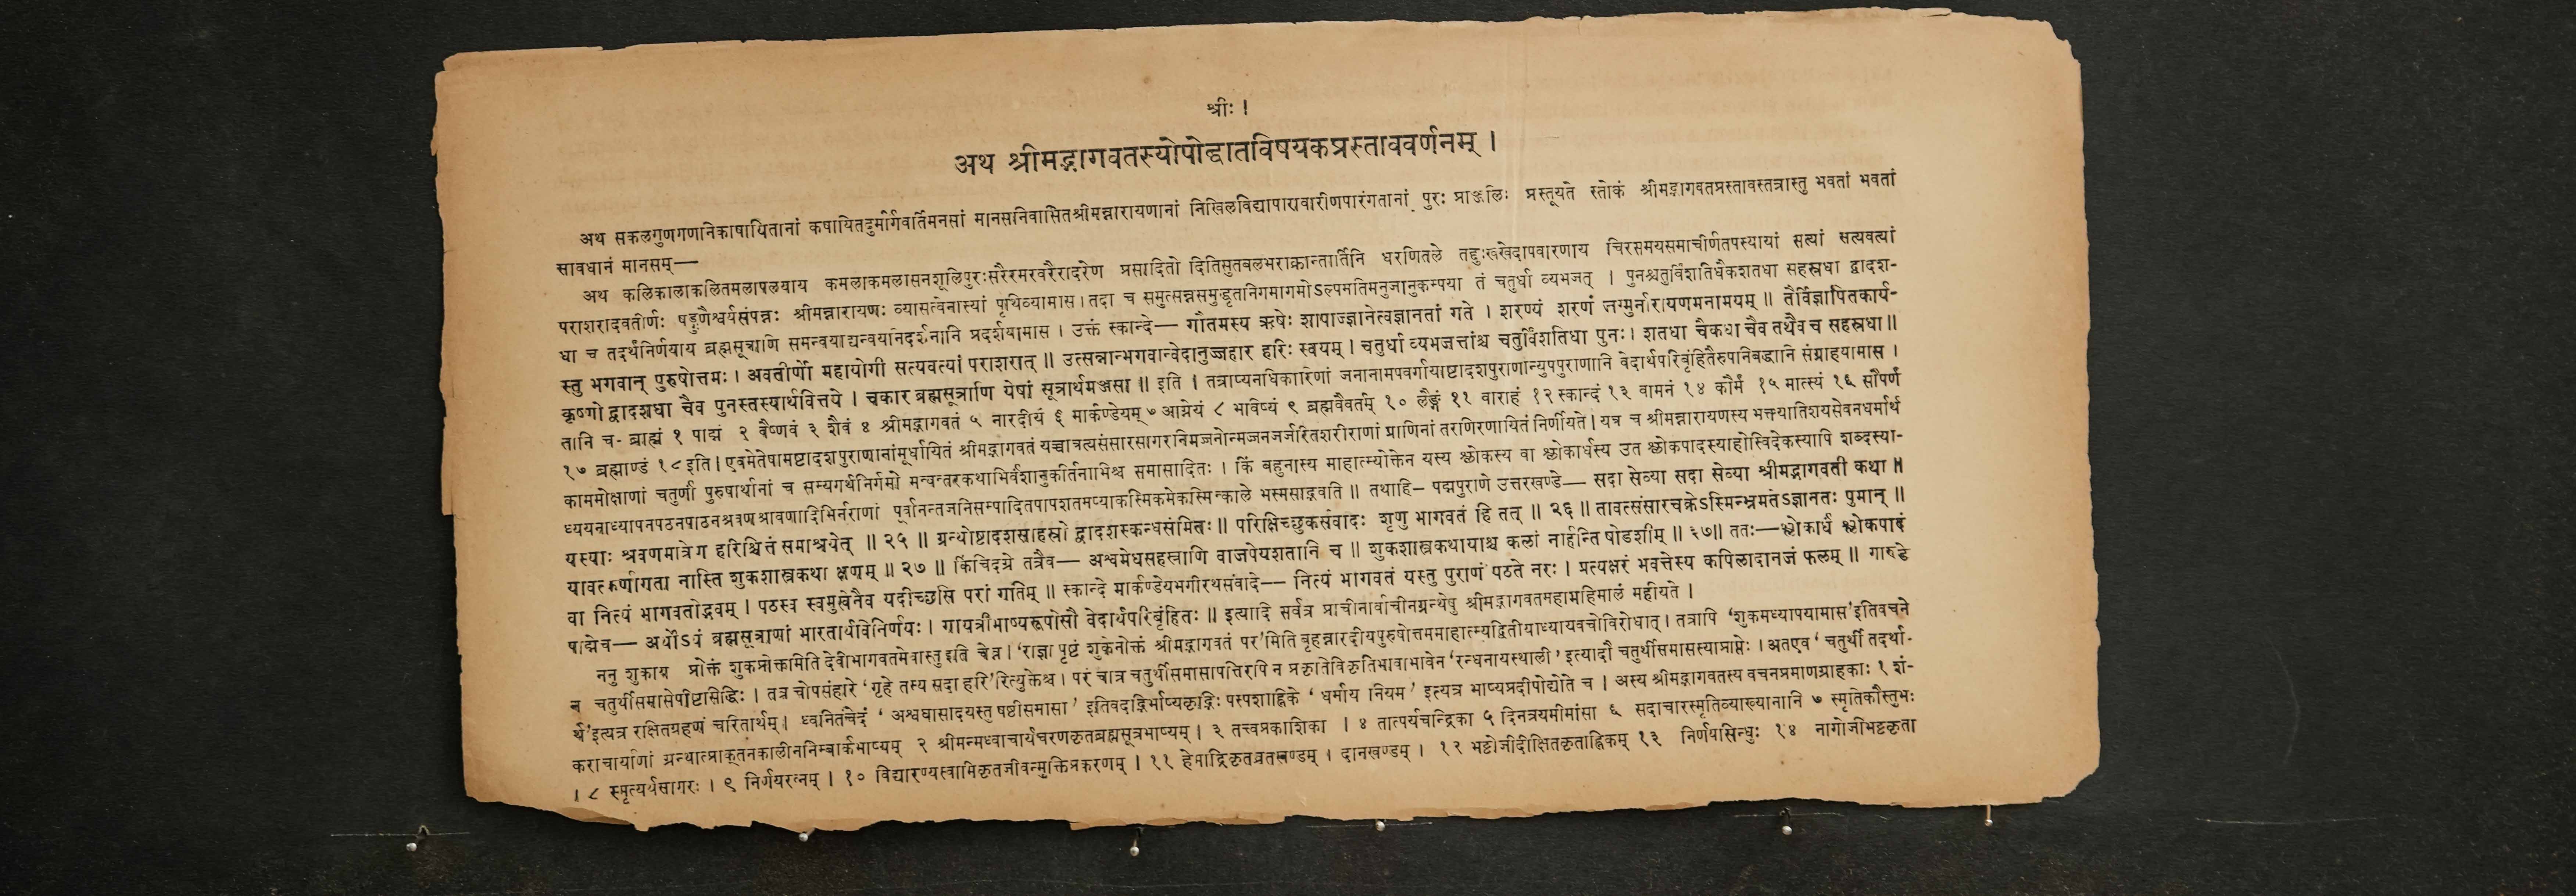 श्रीः ।
अथ श्रीमद्भागवतस्योपोद्घातविषयकप्रस्ताववर्णनम् ।
अथ सकलगुणगणनिकाषायितानां कषायितदुर्मार्गवर्तिमनसां मानसनिवासितश्रीमन्नारायणानां निखिलविद्यापारावारीणपारंगतानां पुरः प्राञ्जलिः प्रस्तूयते स्तोकं श्रीमद्भागवतप्रस्तावस्तत्रास्तु भवतां भवतां
सावधानं मानसम्—
अथ कलिकालाकलितमलापलयाय कमलाकमलासनशूलिपुरःसरैरमरवरैरादरेण प्रसादितो दितिसुतबलभराक्रान्तार्तिनि धरणितले तद्दुःखखेदापवारणाय चिरसमयसमाचीर्णतपस्यायां सत्यां सत्यवत्यां
पराशरादवतीर्णः षड्गुणैश्वर्यसंपन्नः श्रीमन्नारायणः व्यासत्वेनास्यां पृथिव्यामास । तदा च समुत्सन्नसमुद्धृतानिगमागमोऽल्पमतिमनुजानुकम्पया तं चतुर्धा व्यभजत् । पुनश्चतुर्विंशतिधैकशतधा सहस्रधा द्वादश-
धा च तदर्थनिर्णयाय ब्रह्मसूत्राणि समन्वयाद्यन्वयनिदर्शनानि प्रदर्शयामास । उक्तं स्कान्दे— गौतमस्य ऋषेः शापाज्ज्ञानेत्वज्ञानतां गते । शरण्यं शरणं जग्मुर्नारायणमनामयम् ॥ तैर्विज्ञापितकार्य-
स्तु भगवान् पुरुषोत्तमः । अवतीर्णो महायोगी सत्यवत्यां पराशरात् ॥ उत्सन्नान्भगवान्वेदानुज्जहार हरिः स्वयम् । चतुर्धा व्यभजत्तांश्च चतुर्विंशतिधा पुनः । शतधा चैकधा चैव तथैव च सहस्रधा ॥
कृष्णो द्वादशधा चैव पुनस्तस्यार्थवित्तये । चकार ब्रह्मसूत्राणि येषां सूत्रार्थमञ्जसा ॥ इति । तत्राप्यनधिकारिणां जनानामपवर्गायाष्टादशपुराणान्युपपुराणानि वेदार्थपरिबृंहितैरुपनिबद्धानि संग्राहयामास ।
तानि च- ब्राह्मं १ पाद्मं २ वैष्णवं ३ शैवं ४ श्रीमद्भागवतं ५ नारदीयं ६ मार्कण्डेयम् ७ आग्नेयं ८ भविष्यं ९ ब्रह्मवैवर्तम् १० लैङ्गं ११ वाराहं १२ स्कान्दं १३ वामनं १४ कौर्मं १५ मात्स्यं १६ सौपर्णं
१७ ब्रह्माण्डं १८ इति । एवमेतेषामष्टादशपुराणानांमूर्धायितं श्रीमद्भागवतं यच्चात्रत्यसंसारसागरनिमज्जनोन्मज्जनजर्जरितशरीराणां प्राणिनां तरणिरणायितं निर्णीयते । यत्र च श्रीमन्नारायणस्य भक्त्यातिशयसेवनधर्मार्थ
काममोक्षाणां चतुर्णां पुरुषार्थानां च सम्यगर्थनिर्गमो मन्वन्तरकथाभिर्वंशानुकीर्तनाभिश्च समासादितः । किं बहुनास्य माहात्म्योक्तेन यस्य श्लोकस्य वा श्लोकार्धस्य उत श्लोकपादस्याहोस्विदेकस्यापि शब्दस्या-
ध्ययनाध्यापनपठनपाठनश्रवणश्रावणादिभिर्नराणां पूर्वानन्तजनिसम्पादितपापशतमप्याकस्मिकमेकस्मिन्काले भस्मसाद्भवति ॥ तथाहि— पद्मपुराणे उत्तरखण्डे— सदा सेव्या सदा सेव्या श्रीमद्भागवती कथा ॥
यस्याः श्रवणमात्रेण हरिश्चित्तं समाश्रयेत् ॥ २५ ॥ ग्रन्थोष्टादशसाहस्रो द्वादशस्कन्धसंमितः ॥ परिक्षिच्छुकसंवादः शृणु भागवतं हि तत् ॥ २६ ॥ तावत्संसारचक्रेऽस्मिन्भ्रमतेऽज्ञानतः पुमान् ॥
यावत्कर्णागता नास्ति शुकशास्त्रकथा क्षणम् ॥ २७ ॥ किंचिदग्रे तत्रैव— अश्वमेधसहस्त्राणि वाजपेयशतानि च ॥ शुकशास्त्रकथायाश्च कलां नार्हन्ति षोडशीम् ॥ ६७॥ ततः—श्लोकार्धं श्लोकपादं
वा नित्यं भागवतोद्भवम् । पठस्व स्वमुखेनैव यदीच्छसि परां गतिम् ॥ स्कान्दे मार्कण्डेयभगीरथसंवादे— नित्यं भागवतं यस्तु पुराणं पठते नरः । प्रत्यक्षरं भवत्तेस्य कपिलादानजं फलम् ॥ गारुडे
पाद्मेच— अर्थोऽयं ब्रह्मसूत्राणां भारतार्थविनिर्णयः । गायत्रीभाष्यरूपोसौ वेदार्थपरिबृंहितः ॥ इत्यादि सर्वत्र प्राचीनार्वाचीनग्रन्थेषु श्रीमद्भागवतमहामहिमालं महीयते ।
ननु शुकाय प्रोक्तं शुकप्रोक्तमिति देवीभागवतमेवास्तु इति चेन्न । ‘राज्ञा पृष्टं शुकेनोक्तं श्रीमद्भागवतं पर’मिति बृहन्नारदीयपुरुषोत्तममाहात्म्यद्वितीयाध्यायवचोविरोधात् । तत्रापि ‘शुकमध्यापयामास’इतिवचने
न चतुर्थीसमासेपीष्टासिद्धिः । तत्र चोपसंहारे ‘गृहे तस्य सदा हरि’रित्युक्तेश्च । परं चात्र चतुर्थीसमासापत्तिरपि न प्रकृतिविकृतिभावाभावेन ‘रन्धनायस्थाली’ इत्यादौ चतुर्थीसमासस्याप्राप्तेः । अतएव ‘ चतुर्थी तदर्था-
र्थ’इत्यत्र रक्षितग्रहणं चरितार्थम् । ध्वनितंचेदं ‘ अश्वघासादयस्तु षष्ठीसमासा ’ इतिवदद्भिर्भाष्यकृद्भिः पस्पशाह्निके ‘ धर्माय नियम ’ इत्यत्र भाष्यप्रदीपोद्योते च । अस्य श्रीमद्भागवतस्य वचनप्रमाणग्राहकाः १ शं-
कराचार्याणां ग्रन्थात्प्राक्तनकालीननिम्बार्कभाष्यम् २ श्रीमन्मध्वाचार्यचरणकृतब्रह्मसूत्रभाष्यम् । ३ तत्त्वप्रकाशिका । ४ तात्पर्यचन्द्रिका ५ दिनत्रयमीमांसा ६ सदाचारस्मृतिव्याख्यानानि ७ स्मृतिकौस्तुभः
। ८ स्मृत्यर्थसागरः । ९ निर्णयरत्नम् । १० विद्यारण्यस्वामिकृतजीवन्मुक्तिप्रकरणम् । ११ हेमाद्रिकृतव्रतखण्डम् । दानखण्डम् । १२ भट्टोजीदीक्षितकृताह्निकम् १३ निर्णयसिन्धुः १४ नागोजीभट्टकृता